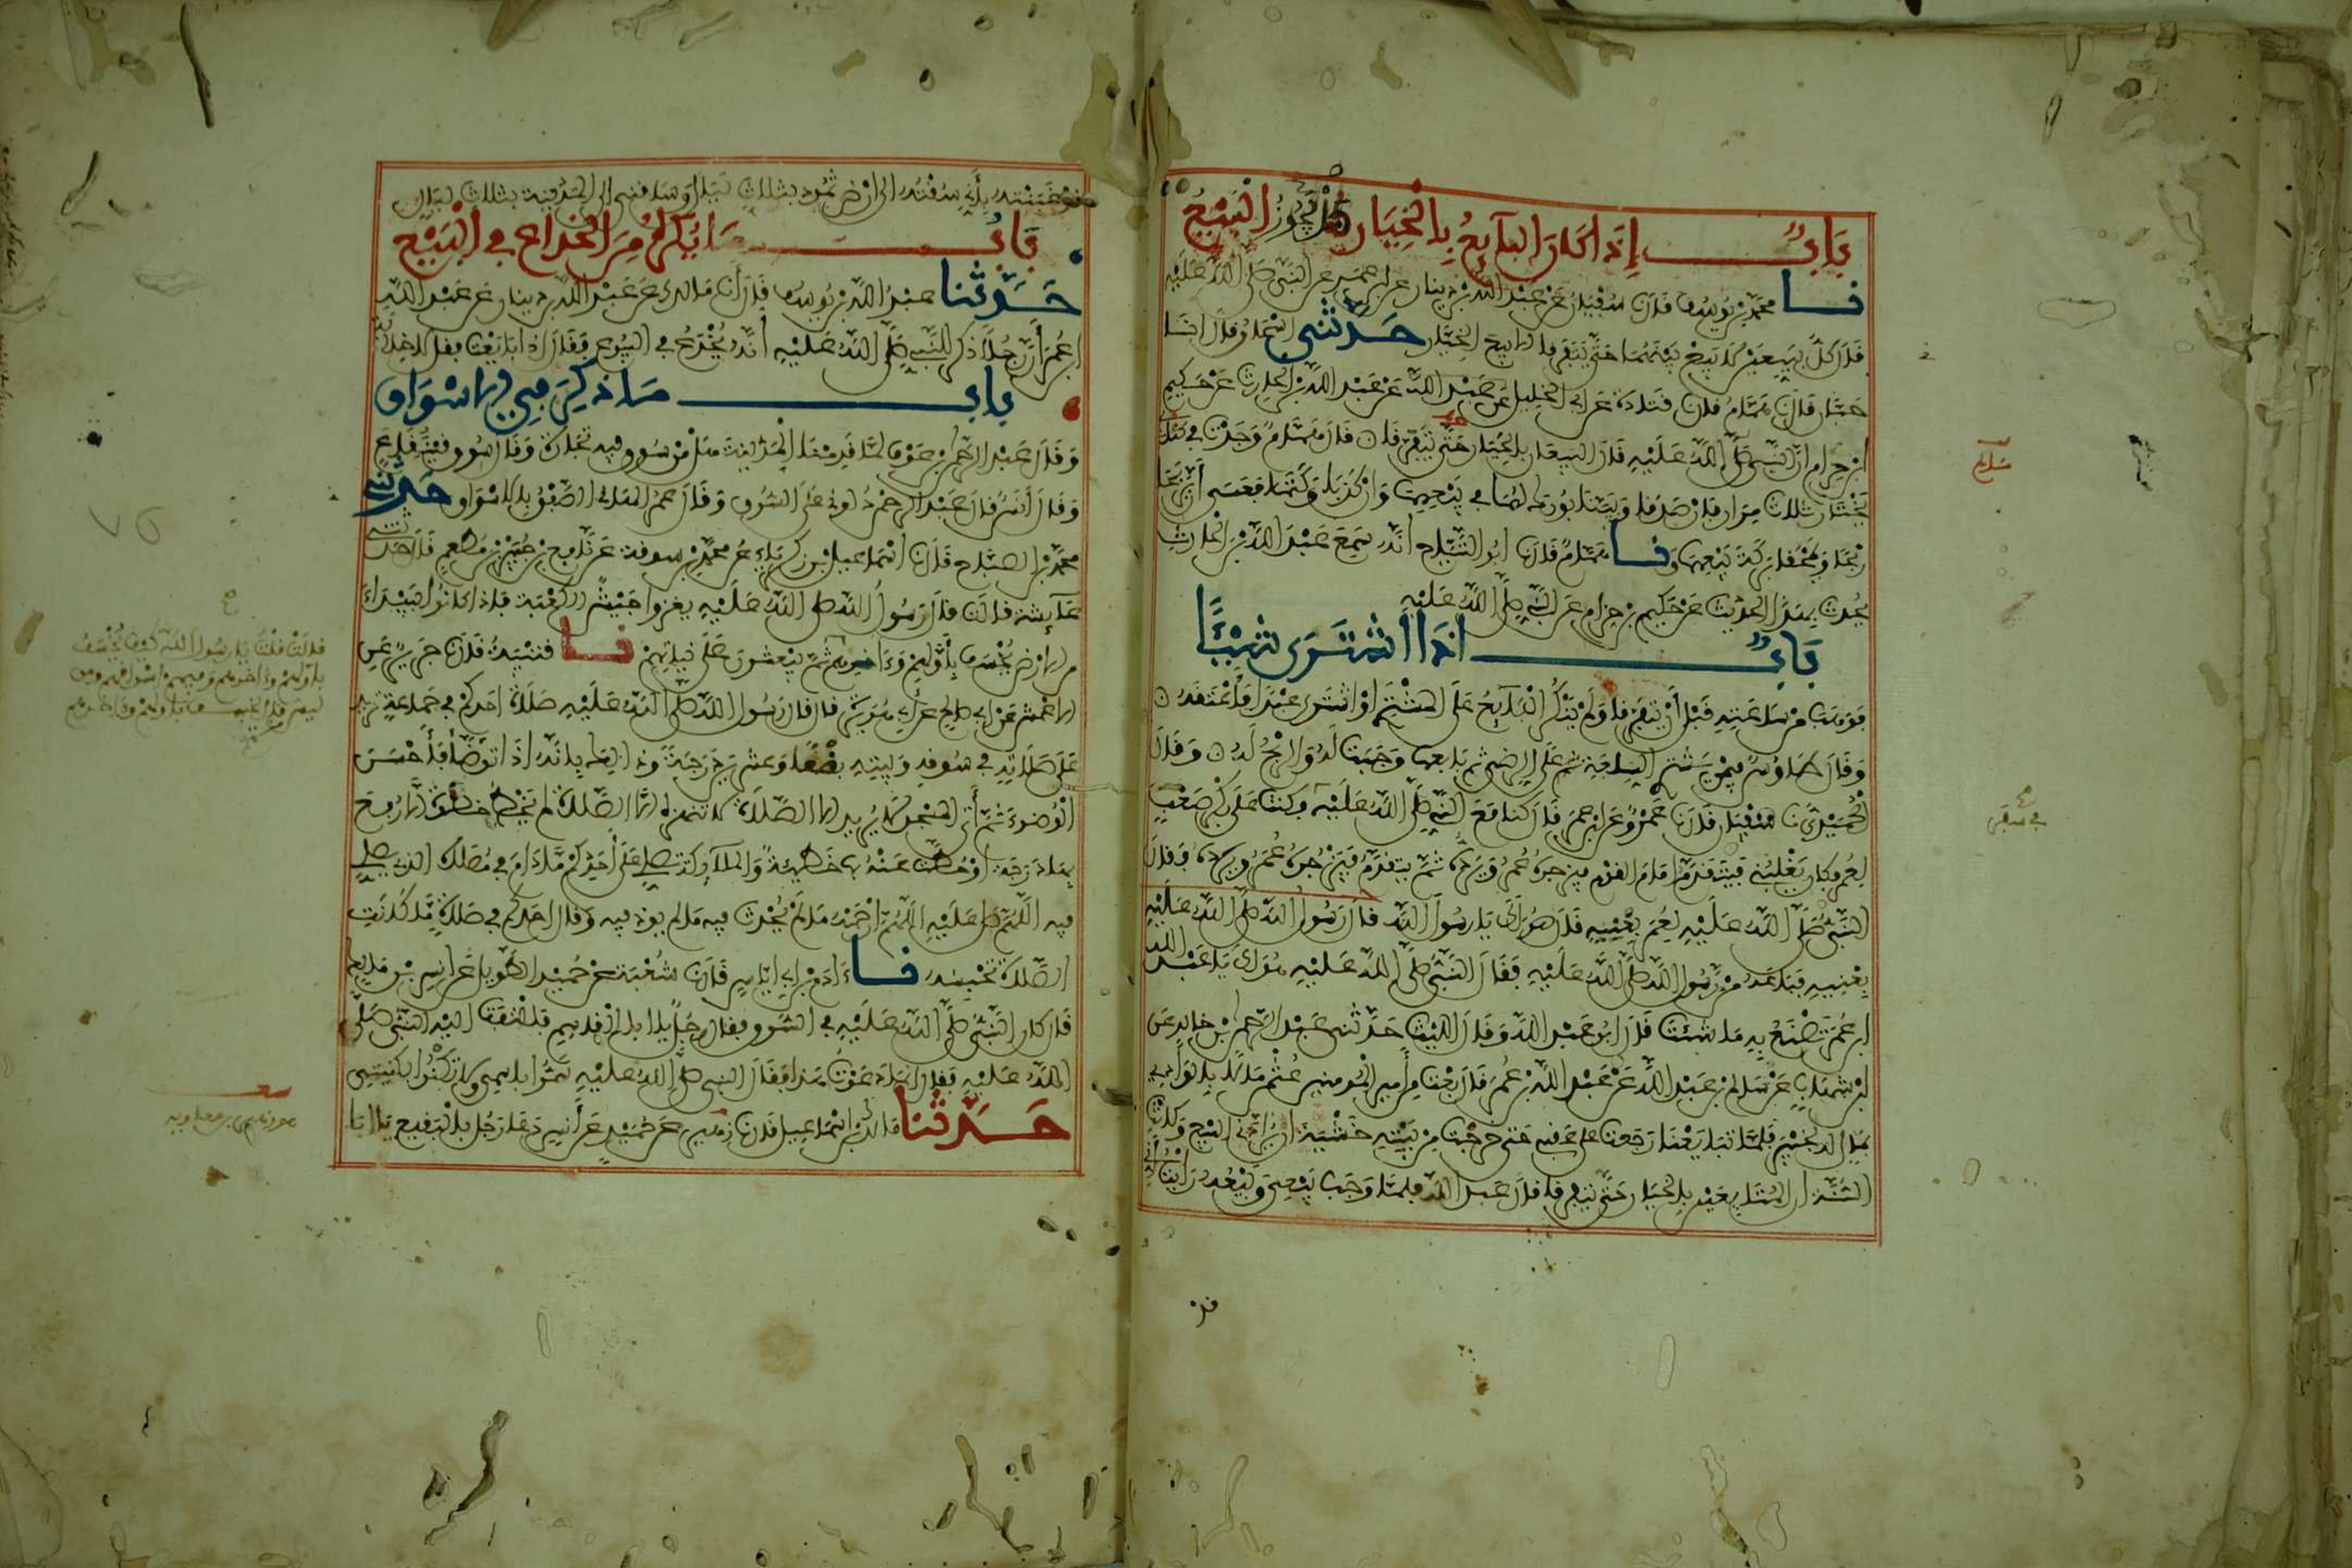 باب إذا كان البايع بالخيار هل يجوز البيع
نا محمد بن يوسف قال نا سفين عن عبد الله بن دينار عن ابن عمر عن النبي صلى الله عليه
قال كل بيعين لا بيع بينهما حتى يتفرقا الا بيع الخيار حدثني اسحاق قال انا
حبان قال نا همام قال نا قتادة عن ابي الخليل عن عبد الله بن الحارث عن حكيم
ابن حزام ان النبي صلى الله عليه قال البيعان بالخيار حتى يتفرقا ن قال همام وجدت في كتابي
يختار ثلاث مرار فان صدقا وبينا بورك لهما في بيعهما وان كذبا وكتما فعسى أن يربحا
ربحا ويمحقا بركة بيعهما ونا همام قال نا ابو التياح انه سمع عبد الله بن الحارث
يحدث بهذا الحديث عن حكيم بن حزام عن النبي صلى الله عليه
باب اذا اشترى شيئا
فوهب من ساعته قبل أن يتفرقا ولم ينكر البايع على المشتري او اشترى عبدا فأعتقه ن
وقال طاوس فيمن يشتري السلعة على الرضى ثم باعها وجبت له والربح له ن وقال
الحميدي نا سفين قال نا عمرو عن ابن عمر قال كنا مع النبي صلى الله عليه فكنت على بكر صعب
لعمر فكان يغلبني فيتقدم امام القوم فيزجره عمر ويرده ثم يتقدم فيزجره عمر ويرده فقال
النبي صلى الله عليه لعمر بعنيه قال هو لك يا رسول الله قال رسول الله صلى الله عليه
بعنيه فباعه من رسول الله صلى الله عليه فقال النبي صلى الله عليه هو لك يا عبد الله
ابن عمر تصنع به ما شئت قال ابو عبد الله وقال الليث حدثني عبد الرحمن بن خالد عن
ابن شهاب عن سالم بن عبد الله عن عبد الله بن عمر قال بعت من أمير المومنين عثمن مالا بالوادي
بمال له بخيبر فلما تبايعنا رجعت على عقبي حتى خرجت من بيته خشية ان يرادني البيع وكانت
السنة ان المتبايعين بالخيار حتى يتفرقا قال عبد الله فلما وجب بيعي وبيعه رايت أني
قد
غبنته بأني سقته الى أرض ثمود بثلاث ليال وساقني الى المدينة بثلاث ليال
باب ما يكره من الخداع في البيع
حدثنا عبد الله بن يوسف قال أنا مالك عن عبد الله بن دينار عن عبد الله
ابن عمر أن رجلا ذكر للنبي صلى الله عليه أنه يخدع في البيوع فقال اذا بايعت فقل لا خلابة
باب ما ذكر في الاسواق
وقال عبد الرحمن بن عوف لما قدمنا المدينة هل من سوق فيه تجارة وقال سوق قينقاع
وقال أنس قال عبد الرحمن دلوني على السوق وقال عمر الهاني الصفق بالاسواق حدثني
محمد بن الصباح قال نا اسماعيل بن زكرياء عن محمد بن سوقة عن نافع بن جبير بن مطعم قال حدثتني
عايشة قالت قال رسول الله صلى الله عليه يغزوا جيش الكعبة فاذا كانوا ببيداء
من الارض يخسف بأولهم وءاخرهم ثم يبعثون على نياتهم نا قتيبة قال نا جرير عن
الاعمش عن ابي صالح عن أبي هريرة قال قال رسول الله صلى الله عليه صلاة احدكم في جماعة تزيد
على صلاته في سوقه وبيته بضعا وعشرين درجة وذلك بانه اذا توضأ فأحسن
الوضوء ثم أتى المسجد لا يريد الا الصلاة لا تنهزه الا الصلاة لم يخط خطوة الا رفع
بها درجة او حطت عنه بها خطيئة والملايكة تصلي على أحدكم ما دام في مصلاه الذي يصلي
فيه اللهم صل عليه اللهم ارحمه ما لم يحدث فيه ما لم يوذ فيه وقال احدكم في صلاة ما كانت
الصلاة تحبسه نا ءادم بن ابي اياس قال نا شعبة عن حميد الطويل عن انس بن مالك
قال كان النبي صلى الله عليه في السوق فقال رجل يا ابا القاسم فالتفت اليه النبي صلى
الله عليه فقال انما دعوت هذا فقال النبي صلى الله عليه سموا باسمي ولا تكنوا بكنيتي
حدثنا مالك بن اسماعيل قال نا زهير عن حميد عن أنس دعا رجل بالبقيع يا ابا
قالت قلت يا رسول الله كيف يخسف
بأولهم وءاخرهم وفيهم اسواقهم ومن
ليس منهم قال يخسف بأولهم وءاخرهم